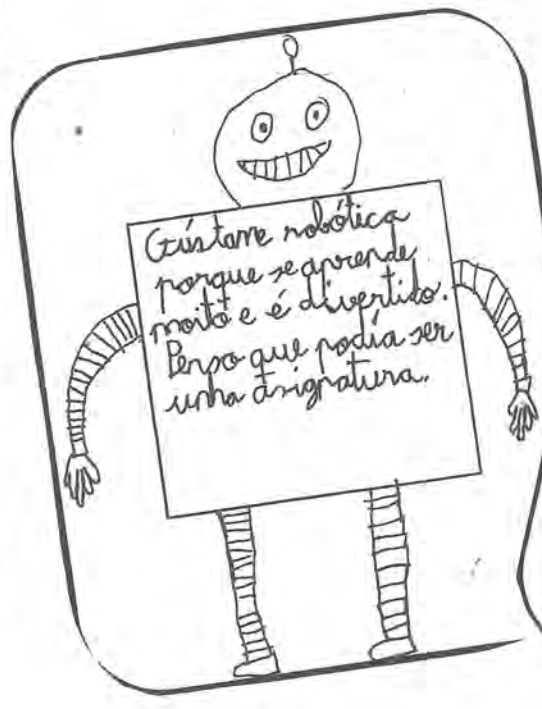 Gústame robótica
porque se aprende
moito e é divertido.
Penso que podía ser
unha asignatura.